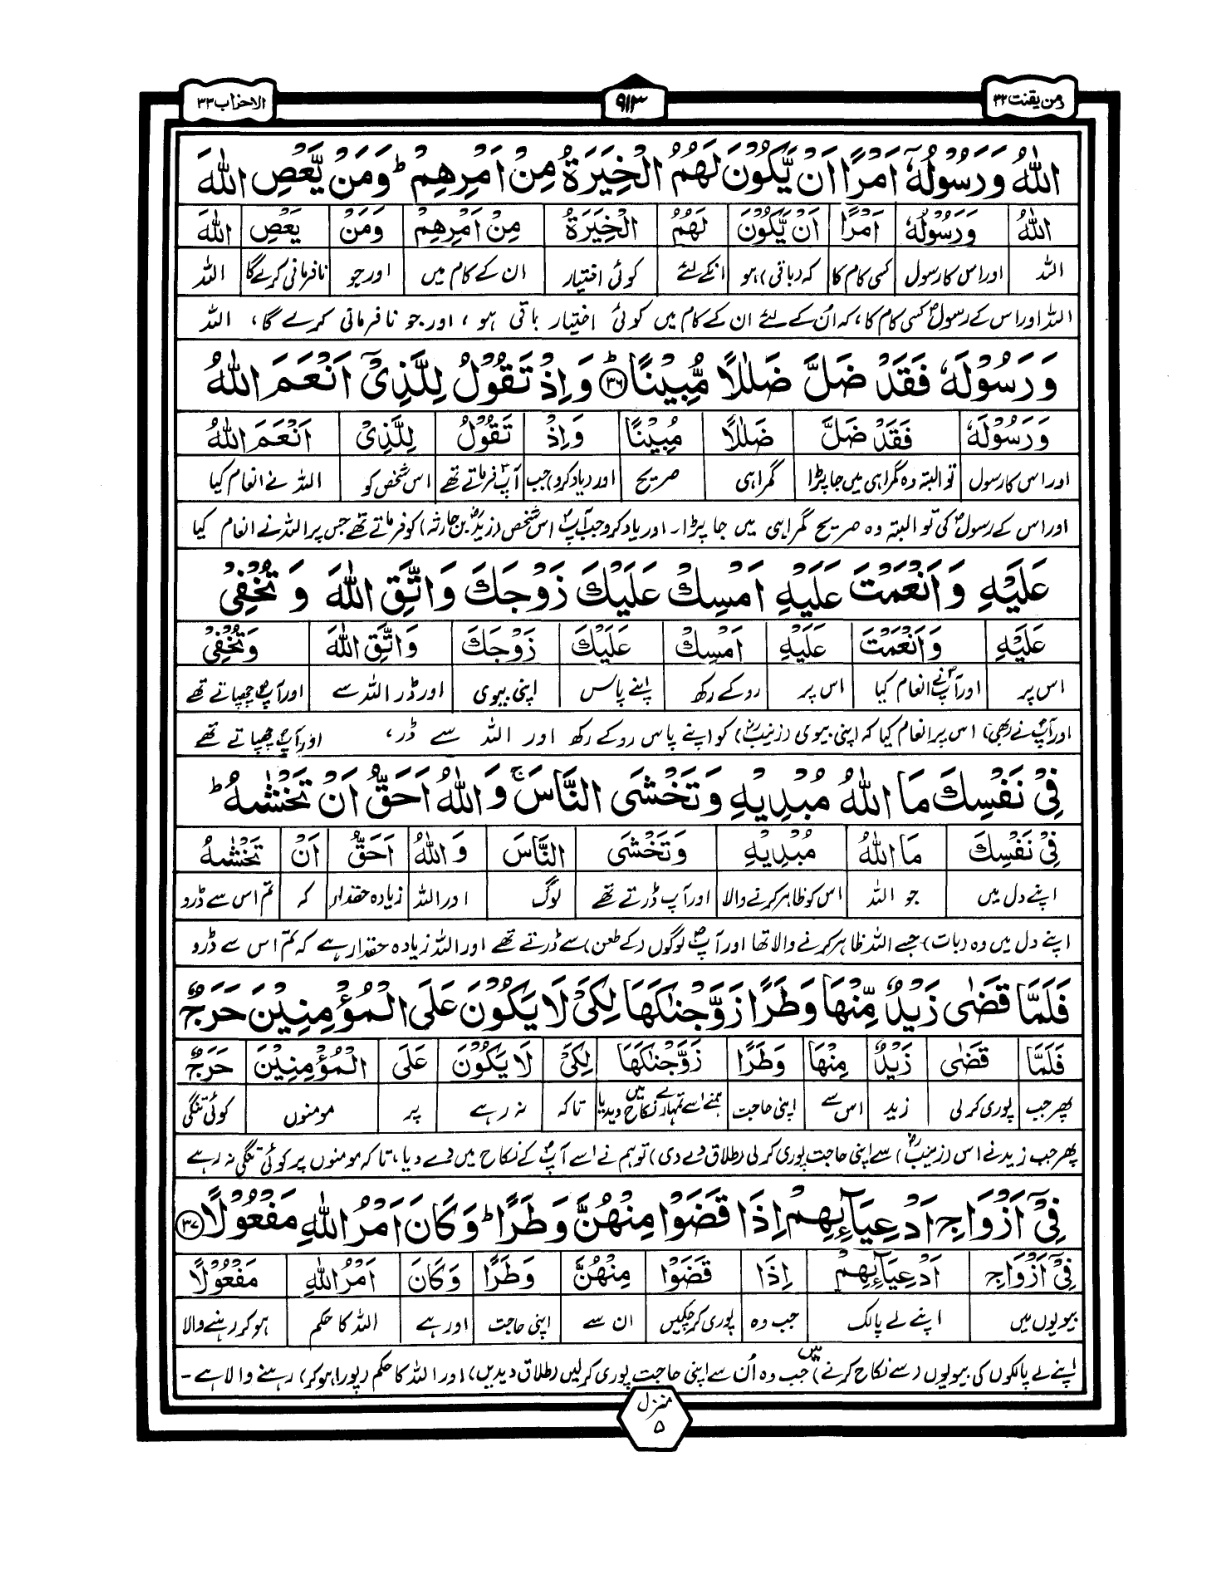 ومن یقنت ۲۲
۹۱۳
الاحزاب ۳۳
اللّٰهُ وَرَسُوْلُهٗۤ اَمْرًا اَنْ یَّكُوْنَ لَهُمُ الْخِیَرَةُ مِنْ اَمْرِهِمْ ؕ وَمَنْ یَّعْصِ اللّٰهَ
اللّٰهُ وَرَسُوْلُهٗ اَمْرًا اَنْ یَّكُوْنَ لَهُمُ الْخِیَرَةُ مِنْ اَمْرِهِمْ وَمَنْ یَعْصِ اللّٰهَ
اللہ اور اس کا رسول کسی کام کا کہ (باقی) ہو انکے لئے کوئی اختیار ان کے کام میں اور جو نافرمانی کرے گا اللہ
اللہ اور اس کے رسول کسی کام کا، کہ اُن کے لئے ان کے کام میں کوئی اختیار باقی ہو ، اور جو نافرمانی کرے گا، اللہ
وَرَسُوْلَهٗ فَقَدْ ضَلَّ ضَلٰلًا مُّبِیْنًا ؕ۳۶ وَاِذْ تَقُوْلُ لِلَّذِیْۤ اَنْعَمَ اللّٰهُ
وَرَسُوْلَهٗ فَقَدْ ضَلَّ ضَلٰلًا مُبِیْنًا وَاِذْ تَقُوْلُ لِلَّذِیْ اَنْعَمَ اللّٰهُ
اور اس کا رسول تو البتہ وہ گمراہی میں جا پڑا گمراہی صریح اور (یاد کرو) جب آپؐ فرماتے تھے اس شخص کو اللہ نے انعام کیا
اور اس کے رسولؐ کی تو البتہ وہ صریح گمراہی میں جا پڑا۔ اور یاد کرو جب آپؐ اس شخص (زیدؓ بن حارثہ) کو فرماتے تھے جس پر اللہ نے انعام کیا
عَلَیْهِ وَاَنْعَمْتَ عَلَیْهِ اَمْسِكْ عَلَیْكَ زَوْجَكَ وَاتَّقِ اللّٰهَ وَتُخْفِیْ
عَلَیْهِ وَاَنْعَمْتَ عَلَیْهِ اَمْسِكْ عَلَیْكَ زَوْجَكَ وَاتَّقِ اللّٰهَ وَتُخْفِیْ
اس پر اور آپؐ نے انعام کیا اس پر روکے رکھ اپنے پاس اپنی بیوی اور ڈر اللہ سے اور آپؐ چھپاتے تھے
اور آپؐ نے (بھی) اس پر انعام کیا کہ اپنی بیوی (زینبؓ) کو اپنے پاس روکے رکھ اور اللہ سے ڈر، اور آپؐ چھپاتے تھے
فِیْ نَفْسِكَ مَا اللّٰهُ مُبْدِیْهِ وَتَخْشَى النَّاسَ ۚ وَاللّٰهُ اَحَقُّ اَنْ تَخْشٰىهُ ؕ
فِیْ نَفْسِكَ مَا اللّٰهُ مُبْدِیْهِ وَتَخْشَى النَّاسَ وَاللّٰهُ اَحَقُّ اَنْ تَخْشٰىهُ
اپنے دل میں جو اللہ اس کو ظاہر کرنے والا اور آپ ڈرتے تھے لوگ اور اللہ زیادہ حقدار کہ تم اس سے ڈرو
اپنے دل میں وہ (بات) جسے اللہ ظاہر کرنے والا تھا اور آپؐ لوگوں (کے طعن) سے ڈرتے تھے اور اللہ زیادہ حقدار ہے کہ تم اس سے ڈرو
فَلَمَّا قَضٰى زَیْدٌ مِّنْهَا وَطَرًا زَوَّجْنٰكَهَا لِكَیْ لَا یَكُوْنَ عَلَى الْمُؤْمِنِیْنَ حَرَجٌ
فَلَمَّا قَضٰى زَیْدٌ مِنْهَا وَطَرًا زَوَّجْنٰكَهَا لِكَیْ لَا یَكُوْنَ عَلَى الْمُؤْمِنِیْنَ حَرَجٌ
پھر جب پوری کرلی زید اس سے اپنی حاجت ہم نے اسے تمہارے نکاح میں دیدیا تاکہ نہ رہے پر مومنوں کوئی تنگی
پھر جب زید نے اس (زینبؓ) سے اپنی حاجت پوری کرلی (طلاق دے دی) تو ہم نے اسے آپؐ کے نکاح میں دے دیا، تاکہ مومنوں پر کوئی تنگی نہ رہے
فِیْۤ اَزْوَاجِ اَدْعِیَآئِهِمْ اِذَا قَضَوْا مِنْهُنَّ وَطَرًا ؕ وَكَانَ اَمْرُ اللّٰهِ مَفْعُوْلًا ۳۷
فِیْۤ اَزْوَاجِ اَدْعِیَآئِهِمْ اِذَا قَضَوْا مِنْهُنَّ وَطَرًا وَكَانَ اَمْرُ اللّٰهِ مَفْعُوْلًا
بیویوں میں اپنے لے پالک جب وہ پوری کرچکیں ان سے اپنی حاجت اور ہے اللہ کا حکم ہو کر رہنے والا
اپنے لے پالکوں کی بیویوں (سے نکاح کرنے) میں جب وہ اُن سے اپنی حاجت پوری کرلیں (طلاق دیدیں) اور اللہ کا حکم (پورا ہوکر) رہنے والا ہے۔
منزل ۵